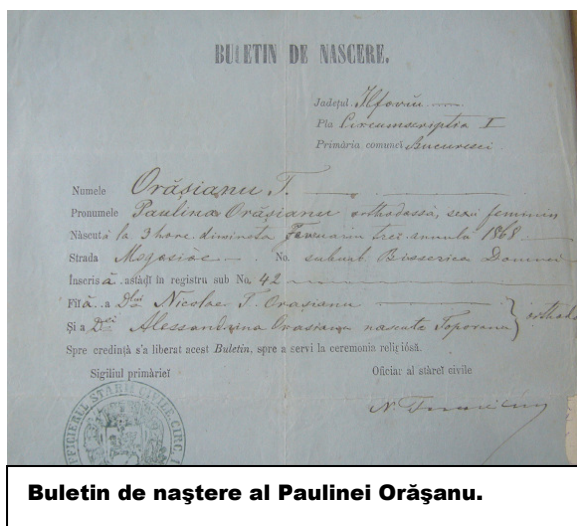 BULETIN DE NASCERE.
Județul Ilfovŭ
Pla Circumscriptia I
Primăria comuneĭ Bucuresci
Numele Orăsianu T.
Pronumele Paulina Orăsianu orthodoxă, sexu feminin
Născută la 3 hore dimineța Januariu trei annulu 1868
Strada No. suburb. Bisserica Domnei
Inscrisă astăḑĭ in registru sub No. 42
Fiiă a Dluĭ Nicolae T. Orasianu
Și a D-eĭ Alessandrina Orasianu nascuta Toporanu } orthodo
Spre credință s'a liberat acest Buletin, spre a servi la ceremonia religiósă.
Sigiliul primărieĭ Oficiar al stăreĭ civile
OFFICIERUL STARII CIVILE. CIRC. I
Buletin de naștere al Paulinei Orășanu.